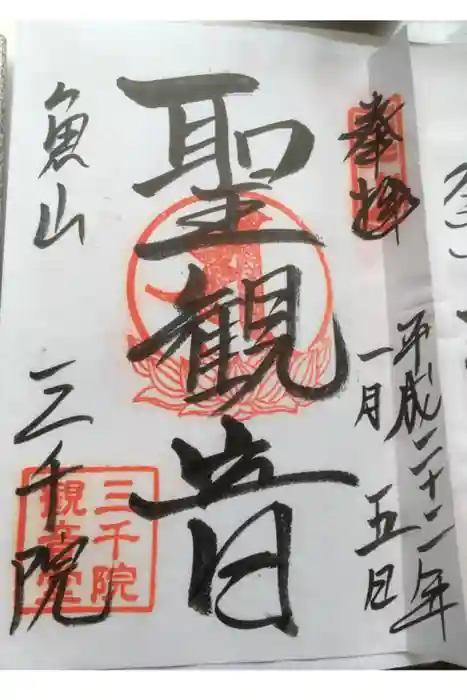 奉拝
平成二十二年
一月五日
聖観音
魚山
三千院
三千院
観音堂